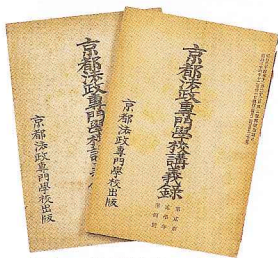 京都法政專門學校講義錄
京都法政專門學校出版
京都法政專門學校講義
京都法政專門學校出版